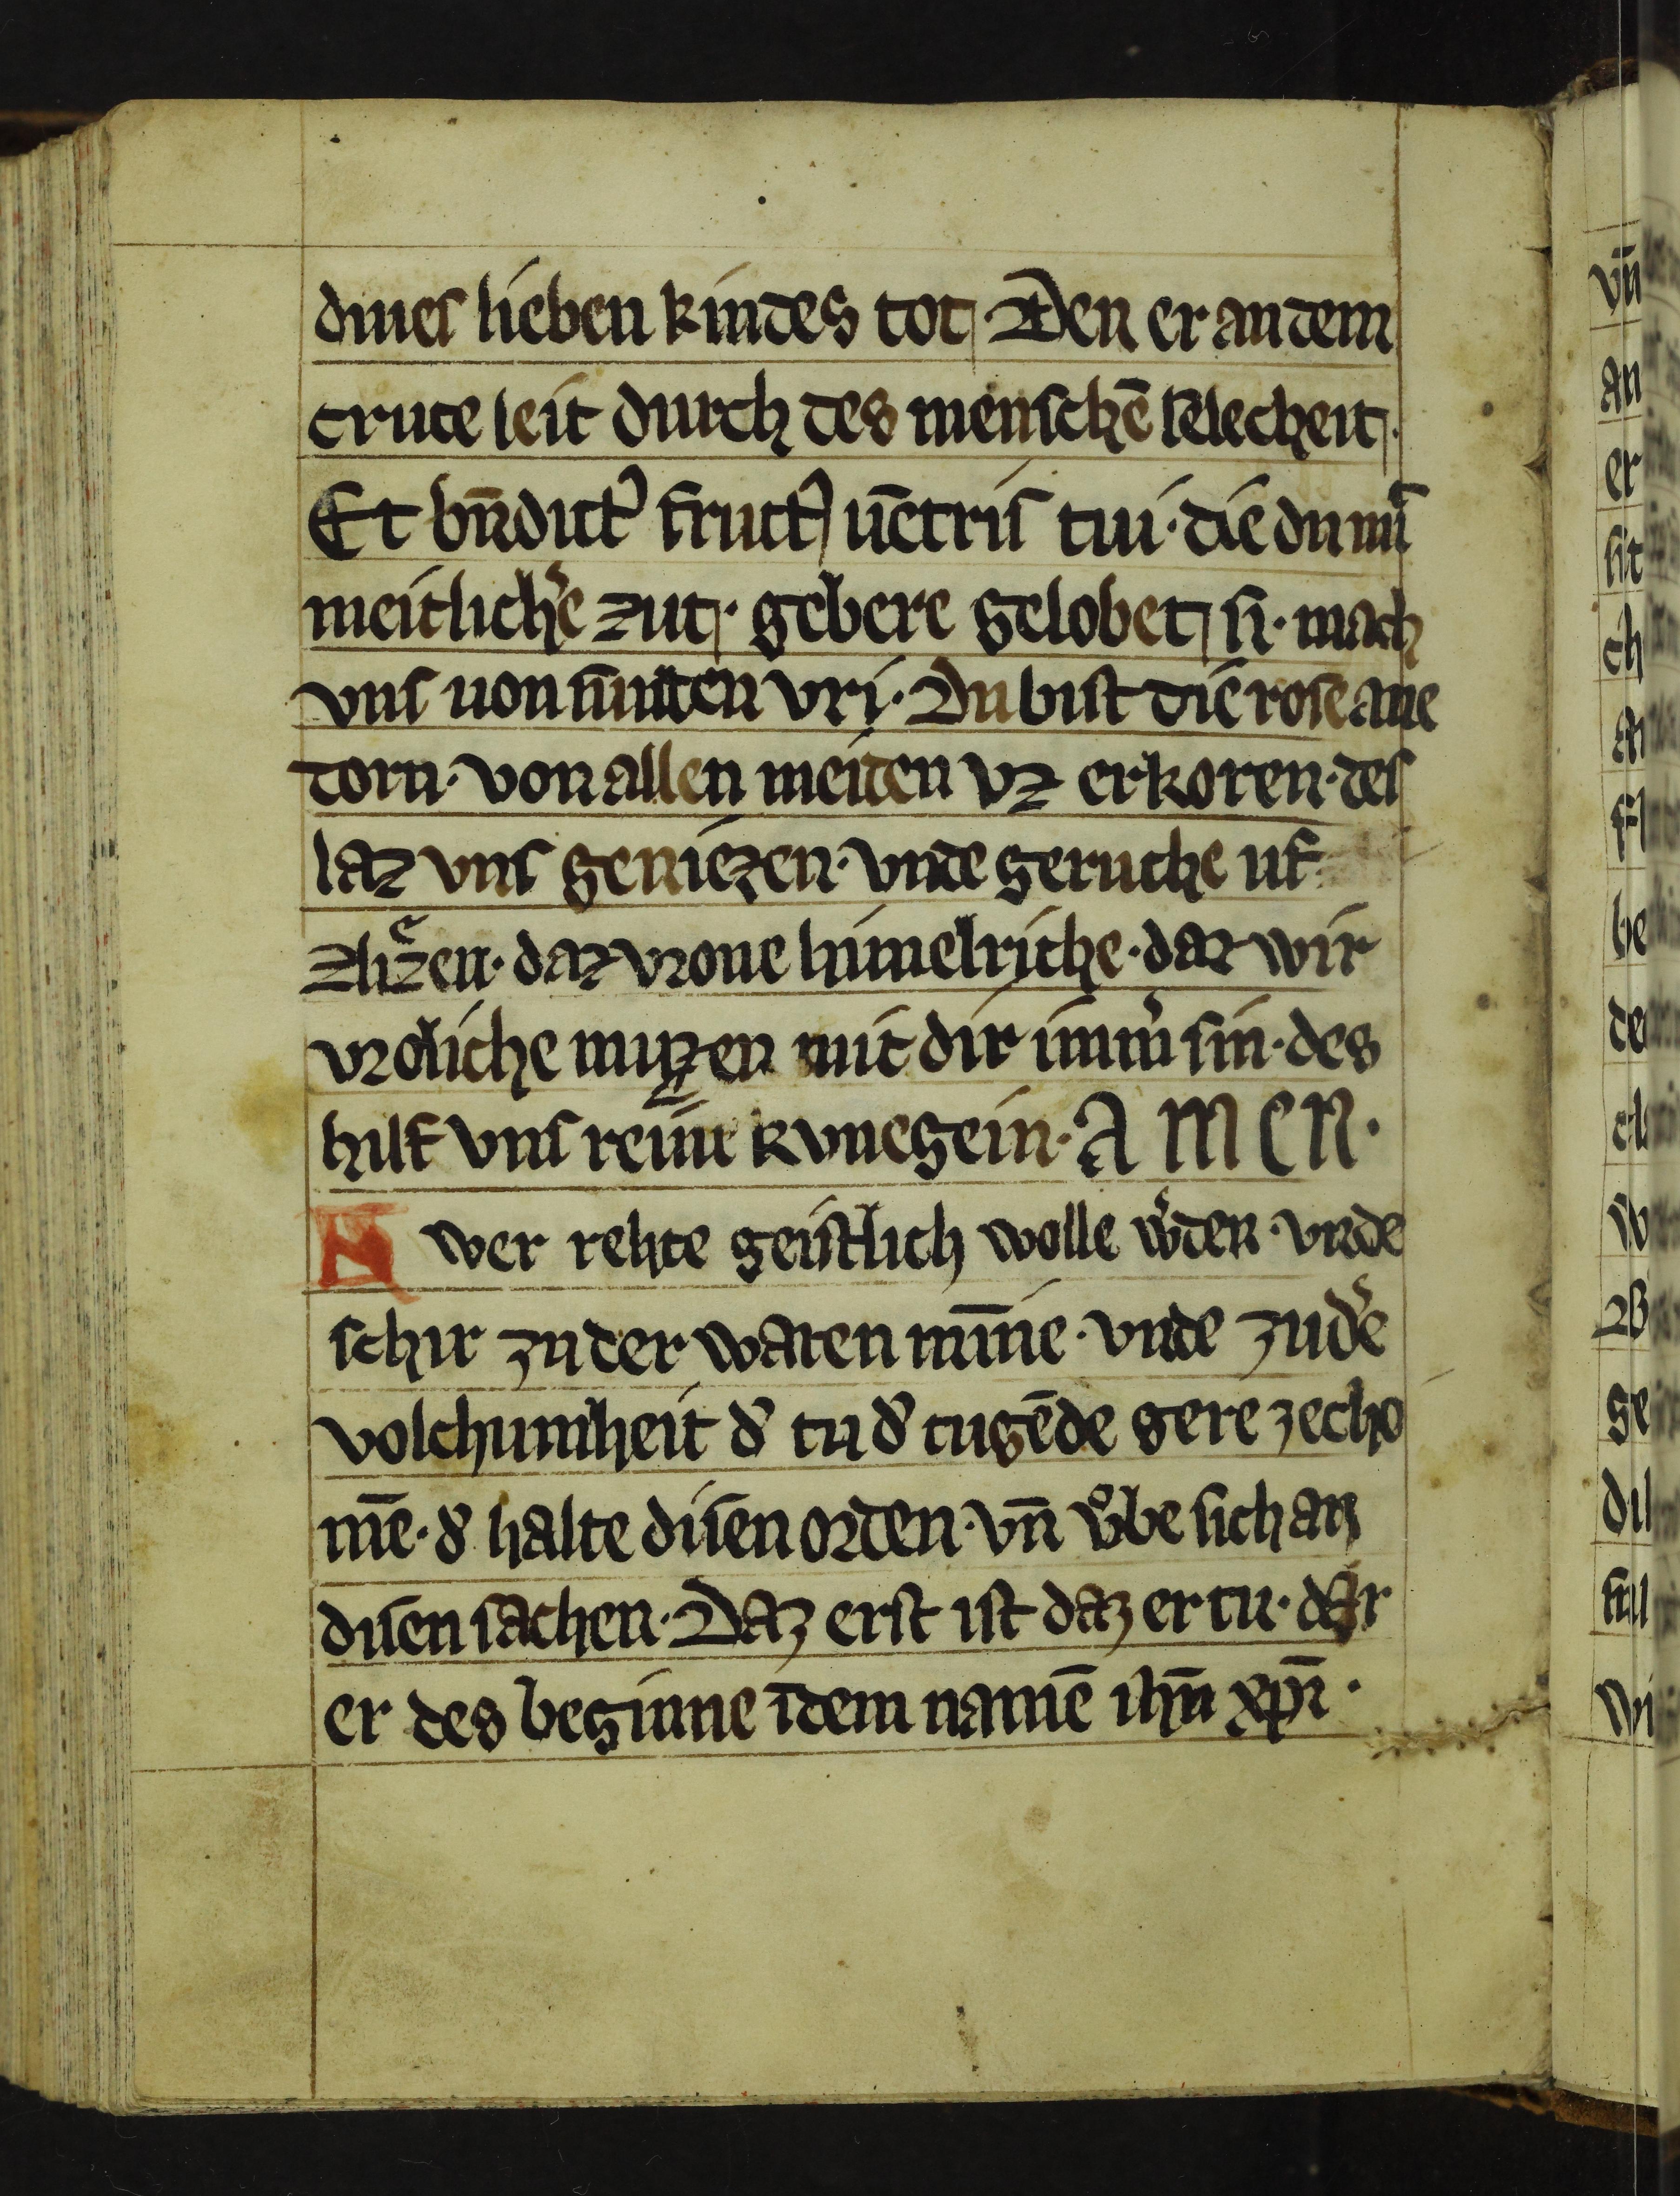 dines lieben kindes tot · Den er an dem
cruce leit durch des menschē selecheit ·
Et bn̄dict᾽ fruct᾽ uētris tui · die du mit᾽
meitlich᾽e zut · gebere gelobet si · mach
vns uon sunden vri · Du bist die rose ane
dorn · von allen meiden vz erkoren · des
laz vns geniezen · vnde geruche uf
zliͤzen · daz vrone himelriche · daz wir
vroliche muzen mit dir imm᾽ sin · des
hilf vns reinu kunegein · A M E N ·
S wer rehte geistlich wolle w᾽den · vnde
schir zu der waren minne · vnde zu d᾽e
volchumheit d᾽ tu d᾽ tugēde gere ze cho
mē · d᾽ halte disen orden · vn̄ vͦbe sich an
disen sachen · Daz erst ist daz er tu · daz
er des beginne ī dem namē ihū xpī ·
vn̄
an
er
sit
ch
be
W
ge